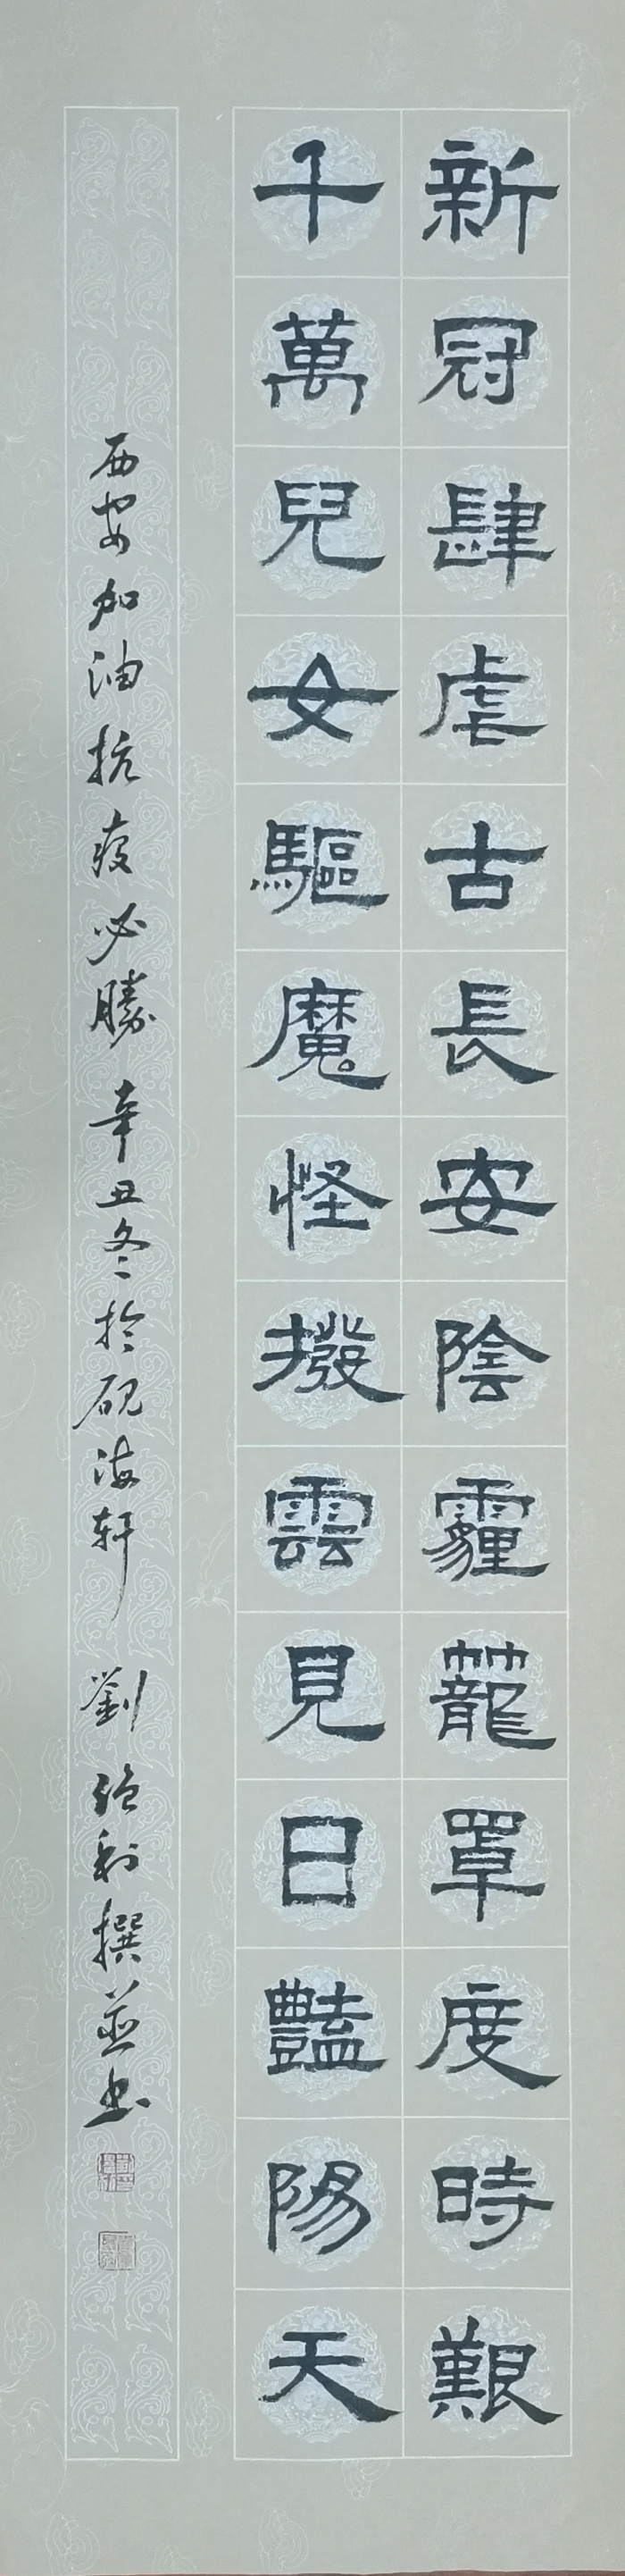 新冠肆虐古長安陰霾籠罩度時艱
千萬兒女驅魔怪撥雲見日豔陽天
西安加油抗疫必勝辛丑冬於硯海軒劉強利撰並书